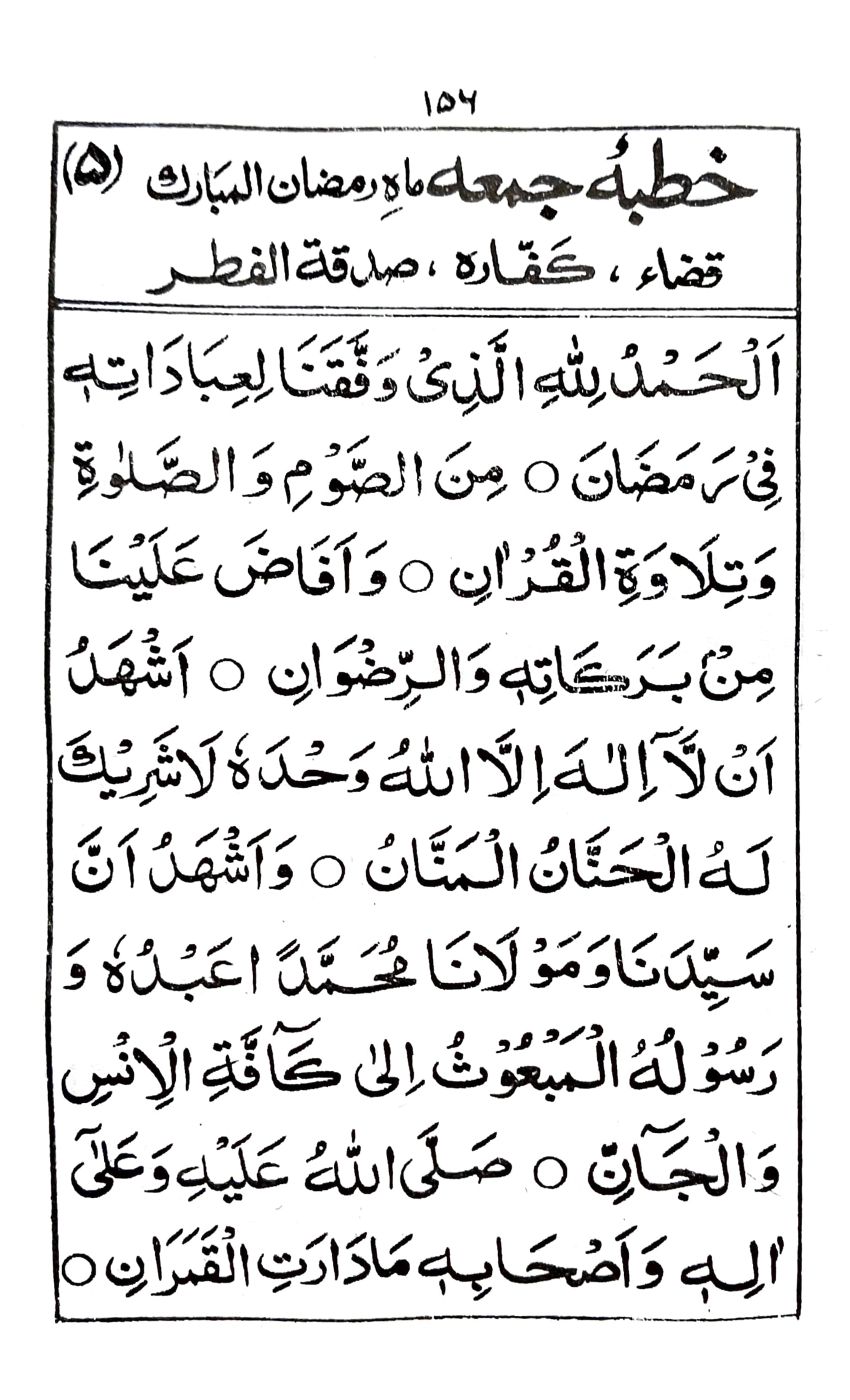 ۱۵۶
خطبۂ جمعہ ماہِ رمضان المبارک (۵)
قضاء ، کفّارہ ، صدقۃ الفطر
اَلْحَمْدُ لِلّٰهِ الَّذِیْ وَفَّقَنَا لِعِبَادَاتِهٖ
فِیْ رَمَضَانَ ○ مِنَ الصَّوْمِ وَالصَّلٰوةِ
وَتِلَاوَةِ الْقُرْاٰنِ ○ وَاَفَاضَ عَلَیْنَا
مِنْۢ بَرَكَاتِهٖ وَالرِّضْوَانِ ○ اَشْهَدُ
اَنْ لَّاۤ اِلٰهَ اِلَّا اللّٰهُ وَحْدَهٗ لَا شَرِیْكَ
لَهُ الْحَنَّانُ الْمَنَّانُ ○ وَاَشْهَدُ اَنَّ
سَیِّدَنَا وَمَوْلَانَا مُحَمَّدًا عَبْدُهٗ وَ
رَسُوْلُهُ الْمَبْعُوْثُ اِلٰی كَآفَّةِ الْاِنْسِ
وَالْجَآنِّ ○ صَلَّی اللّٰهُ عَلَیْهِ وَعَلٰۤی
اٰلِهٖ وَاَصْحَابِهٖ مَادَارَتِ الْقَمَرَانِ ○